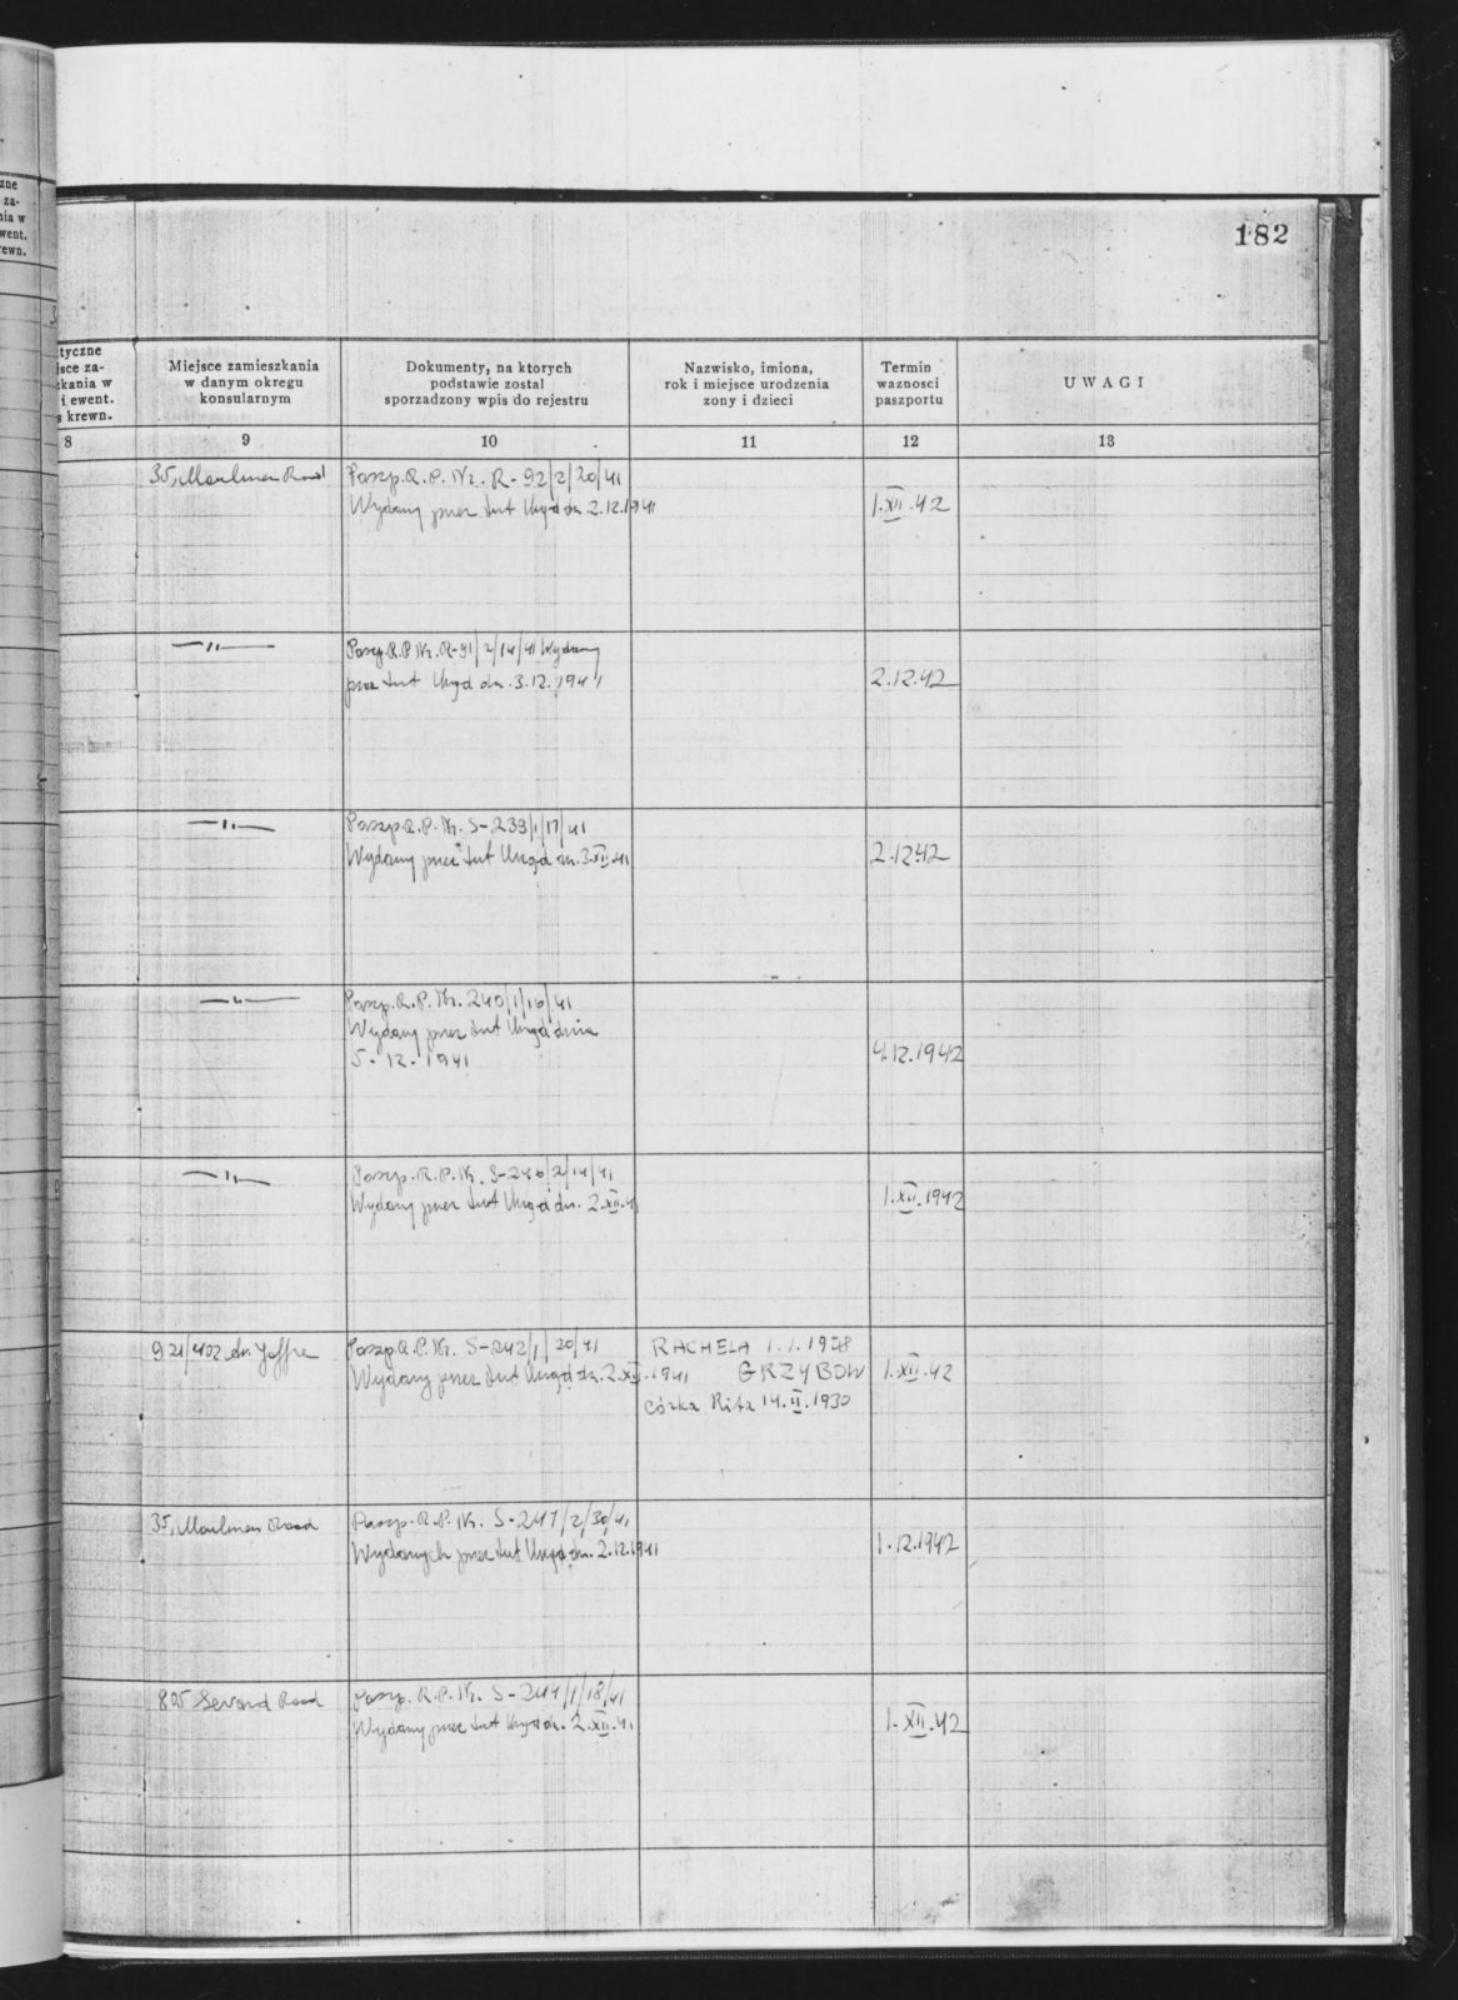 zne
za-
nia w
went.
rewn.
182
tyczne
jsce za-
zkania w
i ewent.
s krewn.
Miejsce zamieszkania
w danym okregu
konsularnym
Dokumenty, na ktorych
podstawie zostal
sporzadzony wpis do rejestru
Nazwisko, imiona,
rok i miejsce urodzenia
zony i dzieci
Termin
waznosci
paszportu
UWAGI
8
9
10
11
12
13
35, Road
Paszp. R.P. Nr. R-92/2/20/41
Wydany przez tut Urząd dn. 2.12.1941
1.XII.42
—"—
Paszp. R.P. Nr. R-91/2/14/41 Wydany
przez tut Urząd dn. 3.12.1941
2.12.42
—"—
Paszp. R.P. Nr. S-239/1/17/41
Wydany przez tut Urząd dn. 3.XII.41
2.12.42
—"—
Paszp. R.P. Nr. 240/1/16/41
Wydany przez tut Urząd dnia
5.12.1941
4.12.1942
—"—
Paszp. R.P. Nr. S-246/2/14/41
Wydany przez tut Urząd dn. 2.XII.41
1.XII.1942
921/402 Av. Joffre
Paszp. R.P. Nr. S-242/1/20/41
Wydany przez tut Urząd dn. 2.XII.1941
RACHELA 1.1.
GRZYBOW
córka Rita 14.II.1930
1.XII.42
35, Road
Paszp. R.P. Nr. S-247/2/30/41
Wydanych przez tut Urząd dn. 2.12.1941
1.12.1942
Road
Paszp. R.P. Nr. S-244/1/18/41
Wydany przez tut Urząd dn. 2.XII.41
1.XII.42